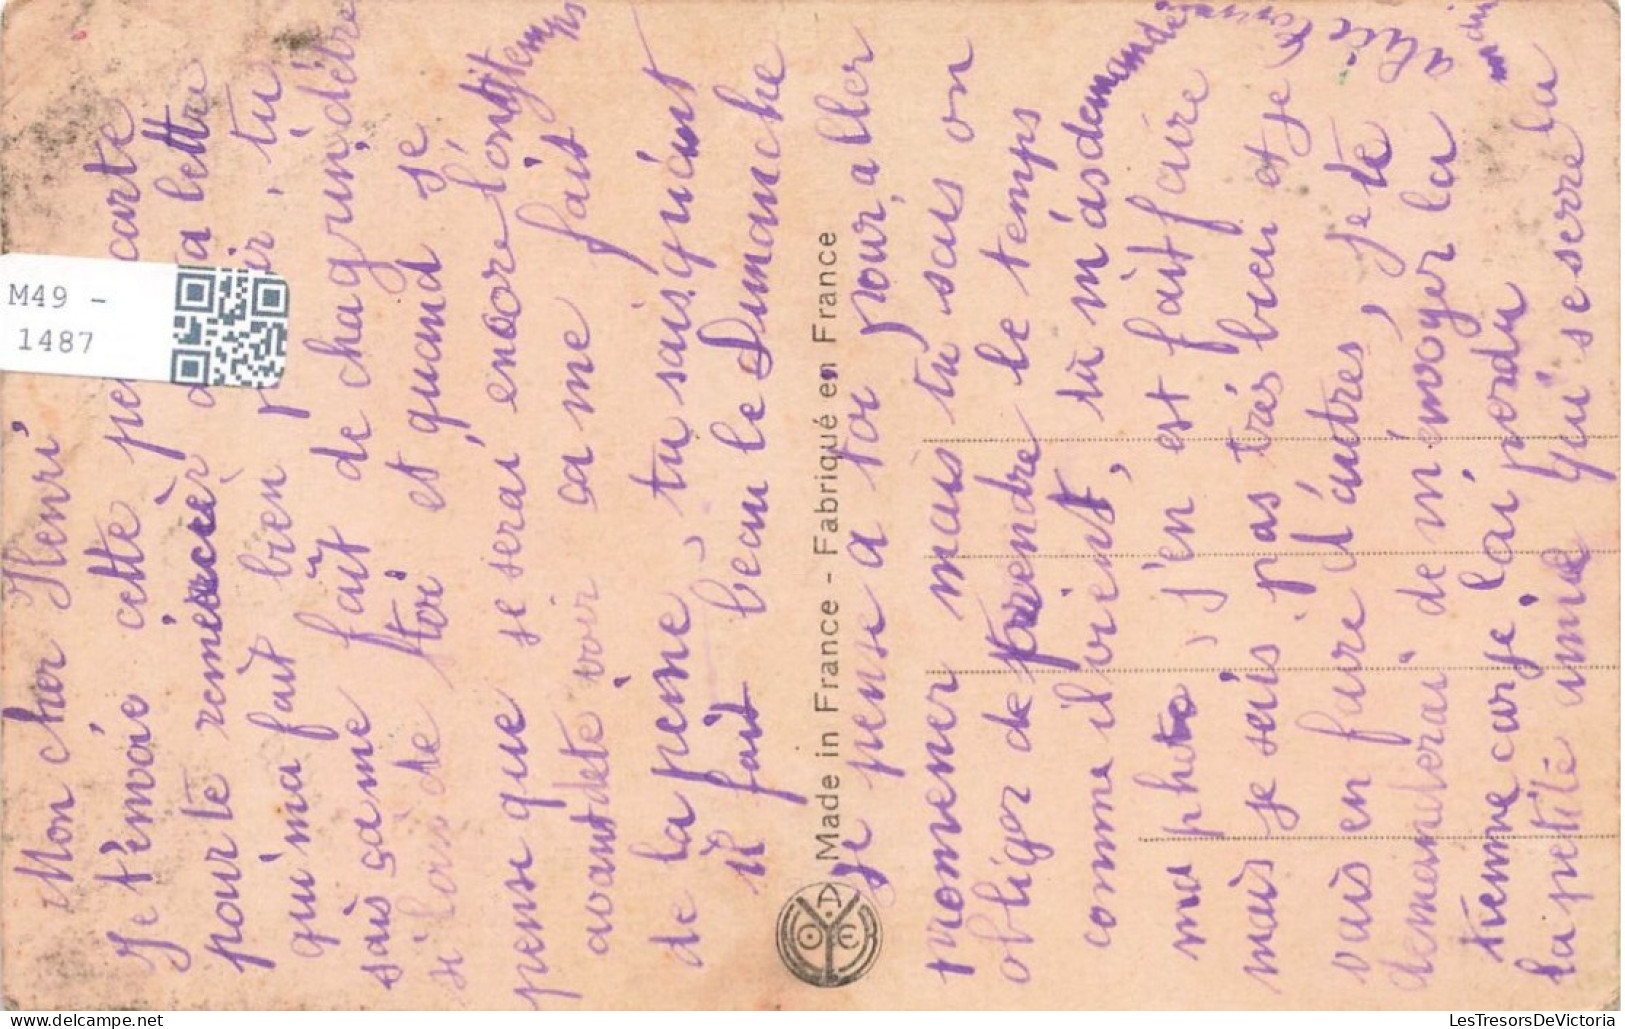 Mon cher Henri
Je t'émvoie cettè carte
pour te remèrcièr a lettre
qui m'a fait bièn , tu
sais ça me fait de chagrin, d'être
si loin de toi et quand je
pense que je serai encore longtemps
avant de te voir ça me fait
de la peine, tu sais quant
il fait beau le Dimanche
je pense a toi pour, aller
promener mais tu sais on
obliger de prendre le temps
comme il vient, tu m'as demander
ma photo, j'en est fait faire
mais je suis pas très bien et je
vais en faire d'autres, je te
demanderai de m'émvoyer la
tienne car je l'ai perdu
la petite amie qui se serre la
Made in France - Fabriqué en France
M49 -
1487
LesTresorsDeVictoria